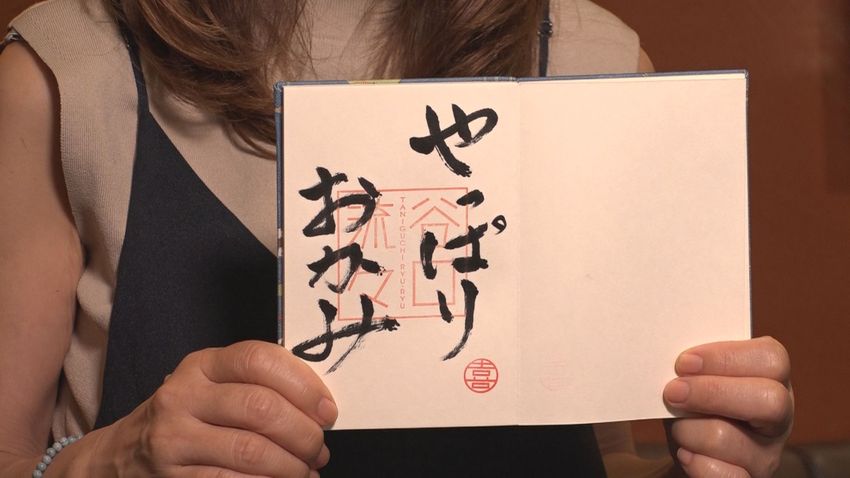 やっぱり
おかみ
谷口
TANIGUCHI RYU-RYU
流々
喜